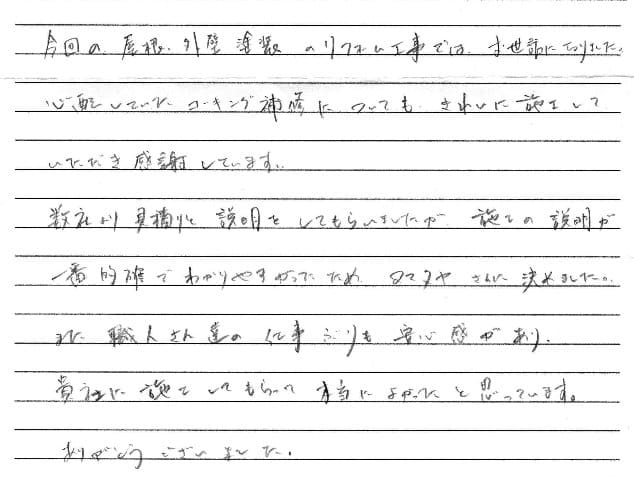 今回の、屋根、外壁塗装のリフォーム工事では、お世話になりました。
心配していたコーキング補修についても、きれいに施工して
いただき感謝しています。
数社より見積りと説明をしてもらいましたが、施工の説明が
一番的確でわかりやすかったため、タマタヤさんに決めました。
また、職人さん達の仕事ぶりも安心感があり、
貴社に施工してもらって本当によかったと思っています。
ありがとうございました。